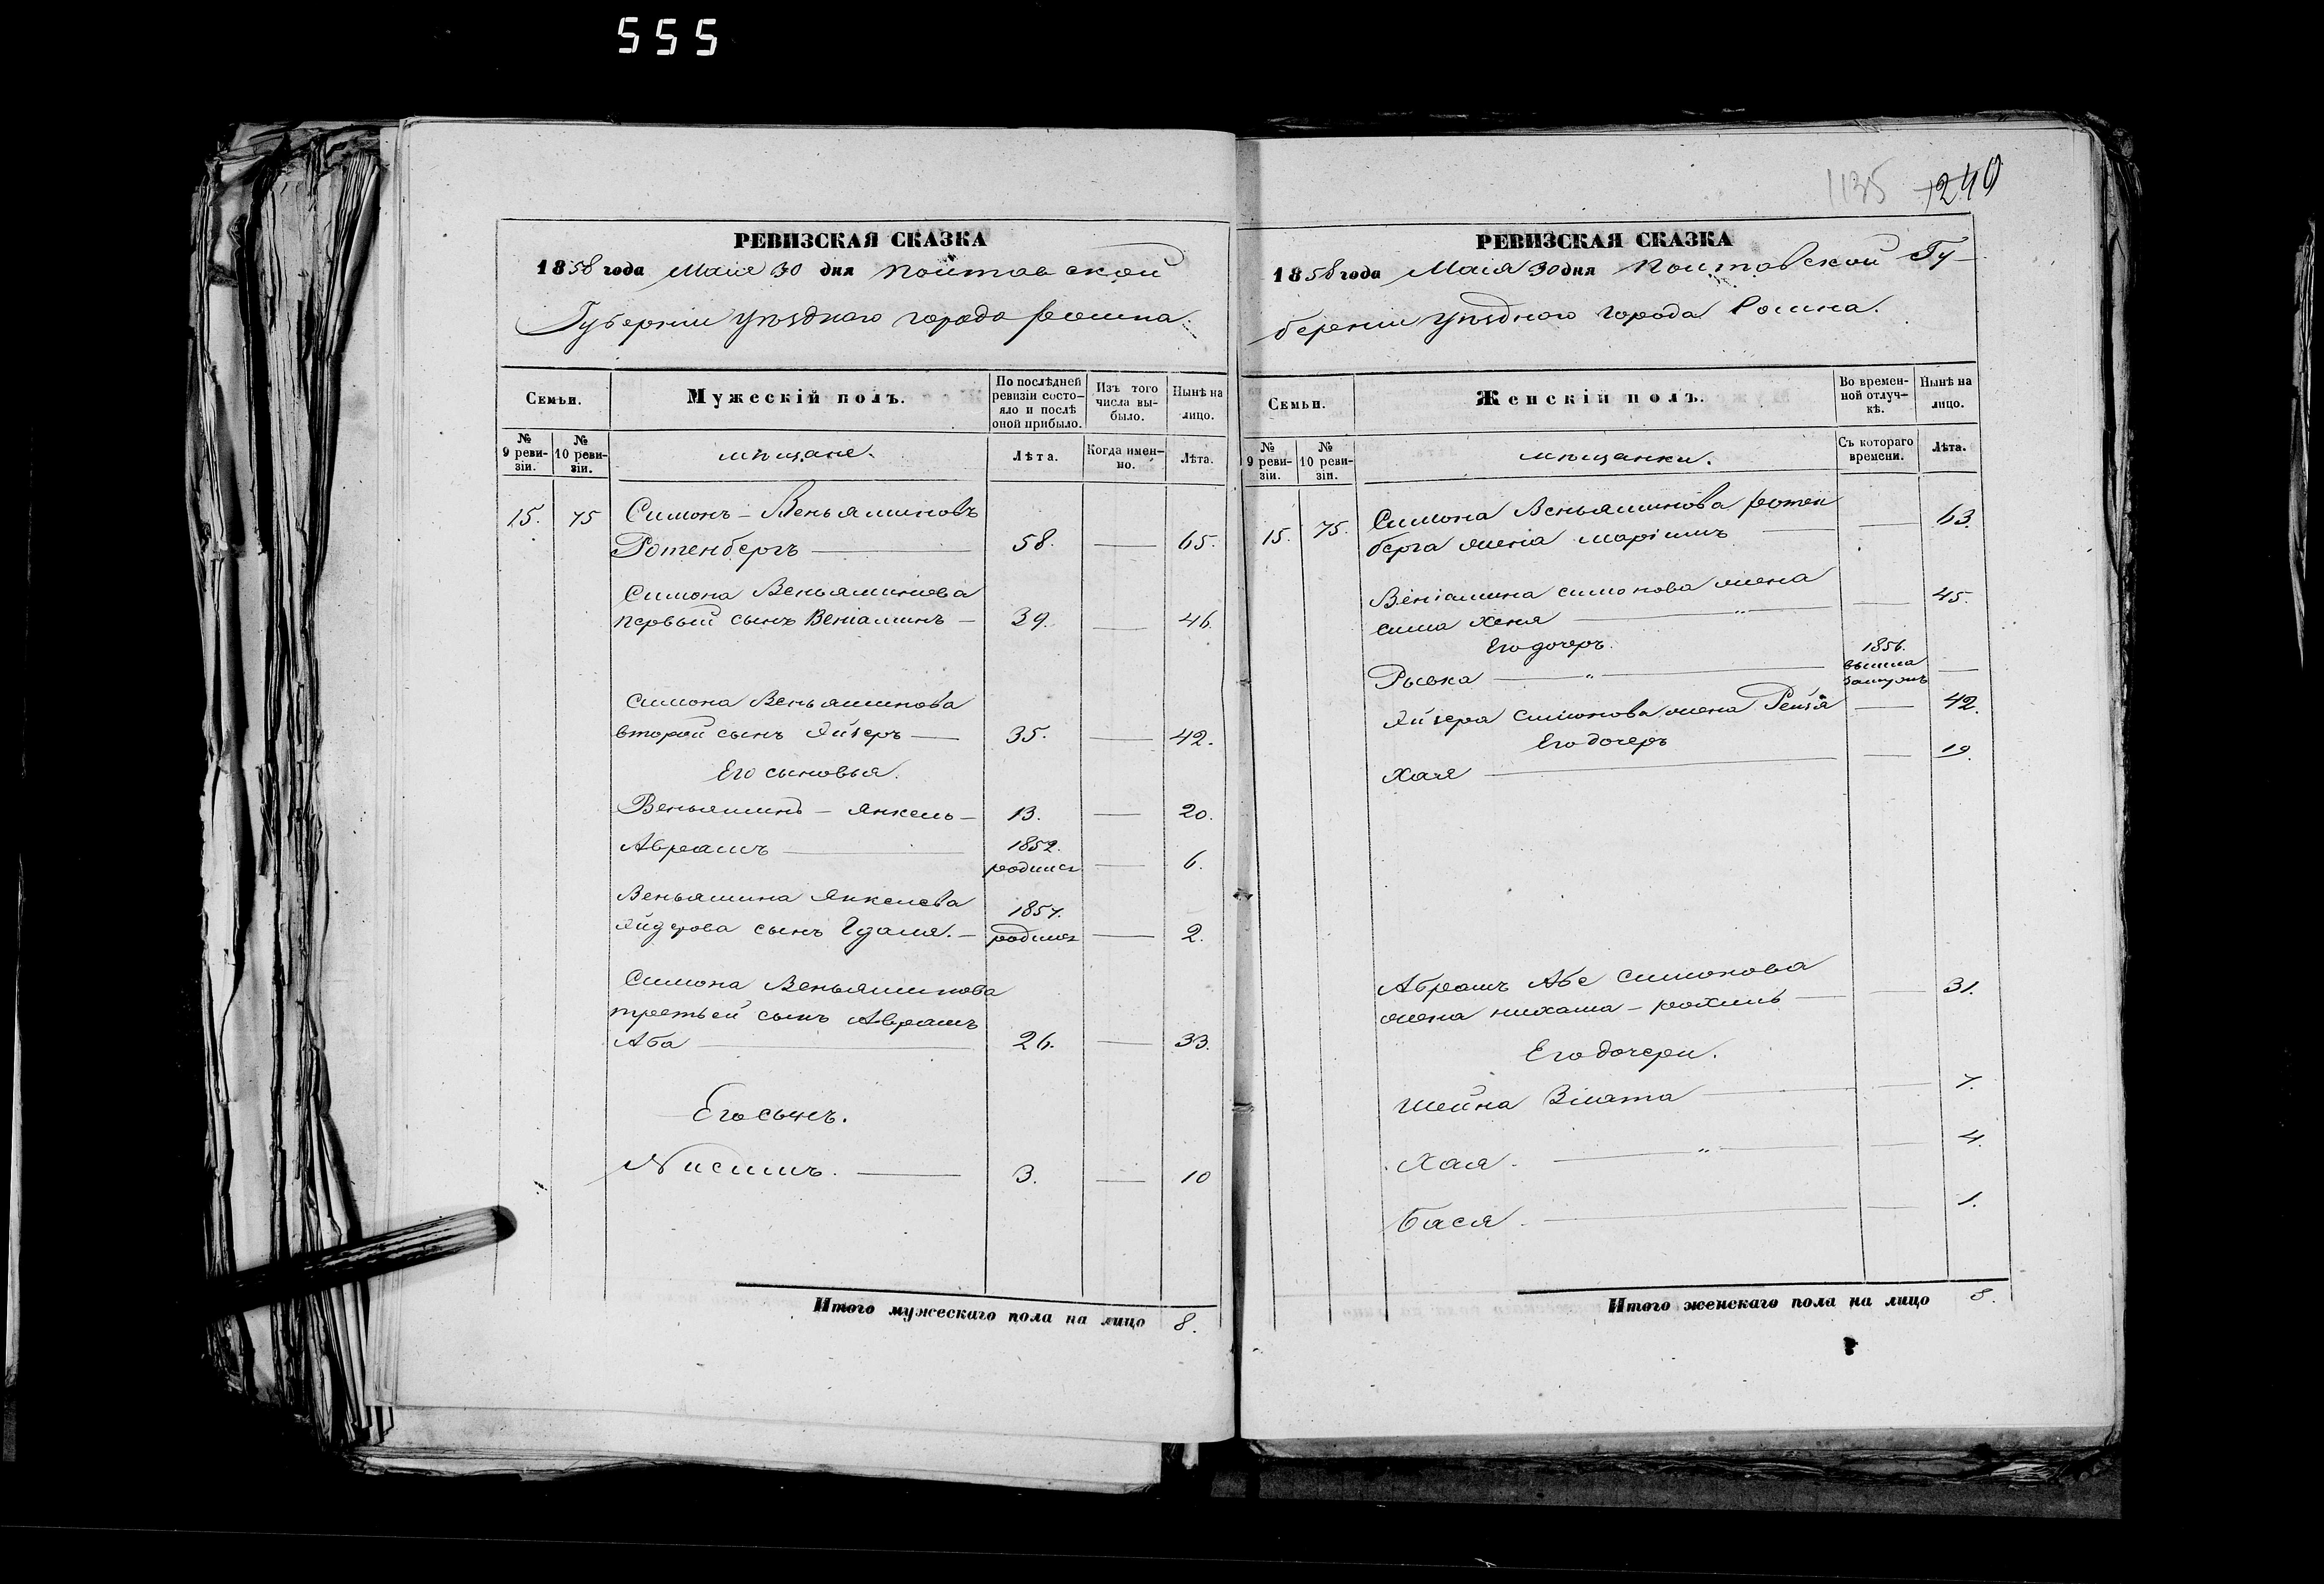 555
1135 1240
РЕВИЗСКАЯ СКАЗКА
1858 года Маія 30 дня Полтавской
Губерніи уѣзднаго города Ромна.
Семьи.
Мужескій полъ.
По послѣдней ревизіи состояло и послѣ оной прибыло.
Изъ того числа выбыло.
Нынѣ на лицо.
№ 9 ревизіи.
№ 10 ревизіи.
мѣщане.
Лѣта.
Когда именно.
Лѣта.
15. 75 Симонъ – Веньяминовъ
Ротенбергъ — 58. — 65.
Симона Веньяминова
первый сынъ Веніаминъ — 39. — 46
Симона Веньяминова
второй сынъ Айзеръ — 35. — 42.
Его сыновья.
Веньяминъ – Янкель – 13. — 20.
Абрамъ — 1852. родился — 6.
Веньямина Янкелева 1857.
сынъ Гдаля. – родился — 2.
Симона Веньяминова
третьей сынъ Абрамъ
Аба — 26. — 33.
Его сынъ.
Нисимъ. — 3. — 10
Итого мужескаго пола на лицо 8.
РЕВИЗСКАЯ СКАЗКА
1858 года Маія 30 дня Полтавской Гу–
берніи уѣзднаго города Ромна.
Семьи.
Женскій полъ.
Во временной отлучкѣ.
Нынѣ на лицо.
№ 9 ревизіи.
№ 10 ревизіи.
мѣщанки.
Съ котораго времени.
Лѣта.
15. 75. Симона Веньяминова Ротен
берга жена — 63.
Веніамина Симонова жена
Сима Хеня — " — — 45.
Его дочерь.
Рывка — " — 1856. вышла замужъ —
Айзера Симонова жена Рейзя — 42.
Его дочерь
Хая — — 19.
Абрамъ Абе Симонова
жена — — 31.
Его дочери.
Шейна Злата — — 7.
Хая. — " — — 4.
Бася. — — 1.
Итого женскаго пола на лицо 8.